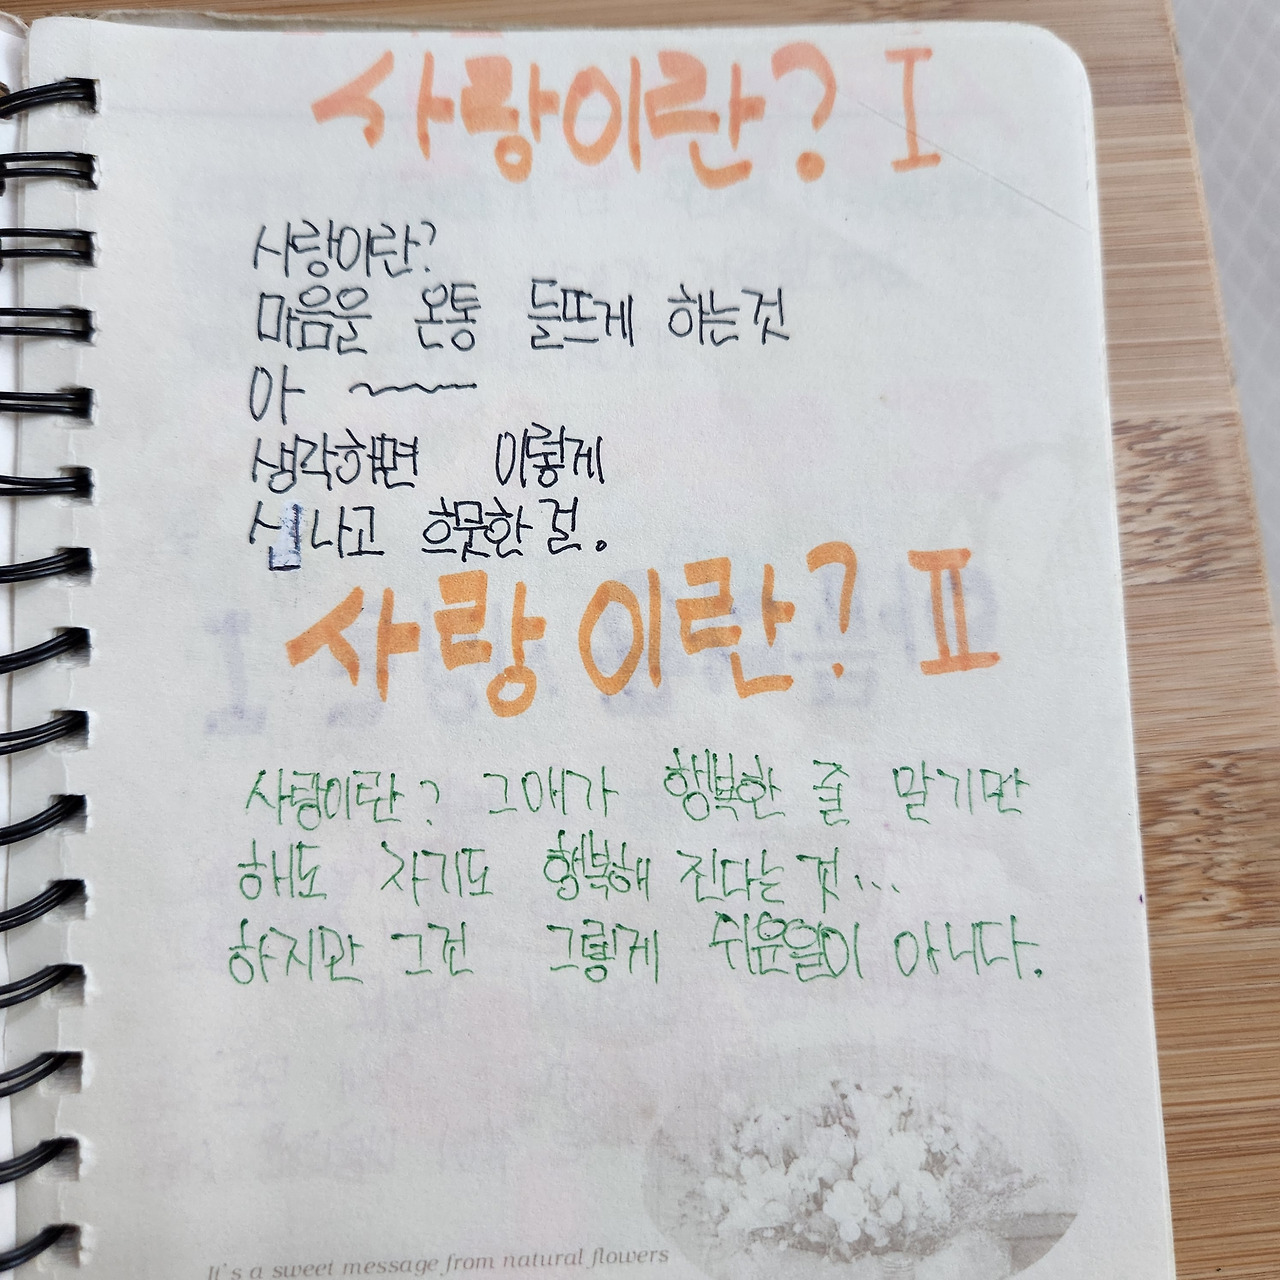 사랑이란? I
사랑이란?
마음을 온통 들뜨게 하는것
아 ~~~
생각해면 이렇게
신나고 흐뭇한 걸.
사랑이란? II
사랑이란? 그애가 행복한 줄 알기만
해도 자기도 행복해 진다는 것...
하지만 그건 그렇게 쉬운일이 아니다.
It's a sweet message from natural flowers